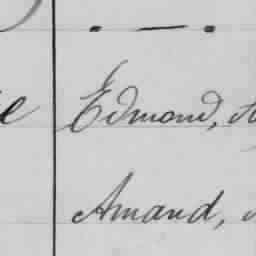 . — .
Edmond,
Amand,